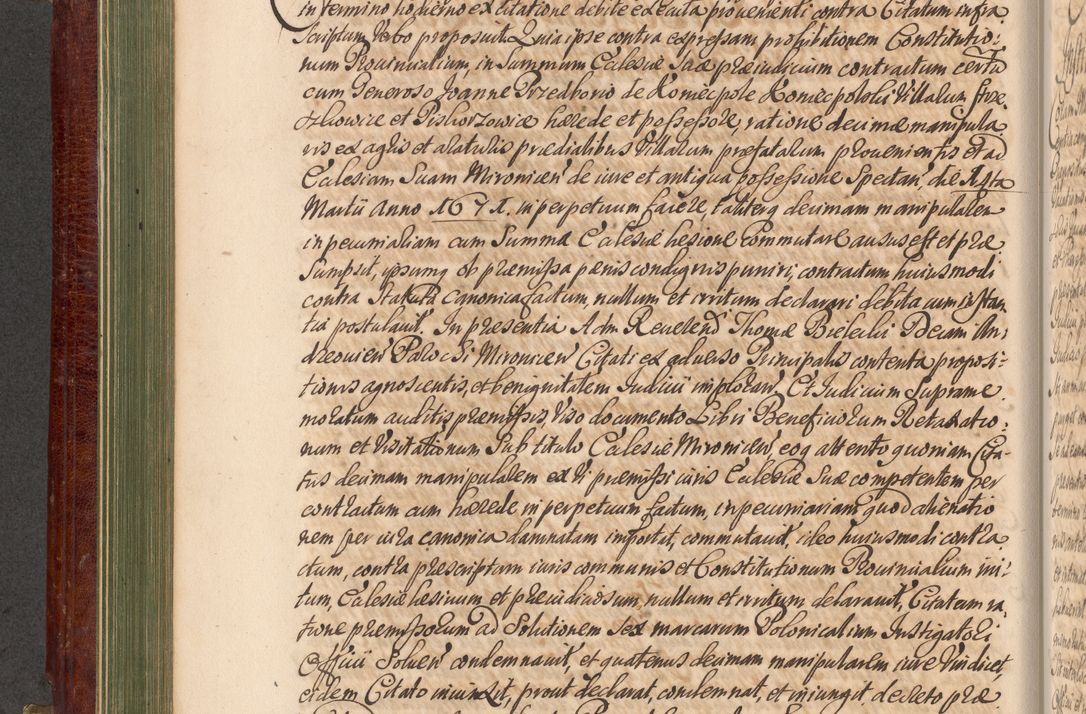 in termino hodierno ex citatione debite executa provenienti contra Citatum infra
scriptum Verbo proposuit. Quia ipse contra expressam prohibitionem Constitutio:
num Provincialium, in Summum Ecclesiæ Suæ præiudicium contractum certū
cum Generoso Joanne Przedborio de Koniecpole Koniecpolski Villarum Strze
szkowice et Piskorzowice hærede et possessore, ratione decimæ manipula
ris ex agris et araturis prædialibus Villarum præfatarum provenientis et ad
Ecclesiam Suam Mironicen de iure et antiqua possessione Spectan, die
Martii Anno 1671. in perpetuum facere, taliterq decimam manipularem
in pecuniariam cum Summa Ecclesiæ læsione commutare ausus est et præ
sumpsit, ipsumq ob præmissa pænis condignis puniri, contractum huiusmodi
contra Statuta Canonica factum, nullum et irritum declarari debita cum instan
tia postulavit. In præsentia Adm Reverend Thomæ Bielecki Decani An:
dreovien Parochi Mironicien Citati ex adverso Principalis contenta proposi:
tionis agnoscentis, et benignitatem Iudicii imploran. Et Iudicium Suprame
moratum auditis præmissis, Viso documento Libri Beneficiorum Retaxatio:
num et Visitationum Sub titulo Ecclesiæ Mironicien, eoq attento quoniam Cita-
tus decimam manipularem ex Vi præmissi iuris Ecclesiæ Suæ competentem per
contractum cum hærede in perpetuum factum, in pecuniariam quod alienatio
nem per iura canonica damnatam importat, commutavit, ideo huiusmodi contra
ctum, contra præscriptum iuris communis et Constitutionum Provincialium ini:
tum, Ecclesiæ læsivum et præiudiciosum, nullum et irritum declaravit, Citatum ra
tione præmissorum ad Solutionem Sex marcarum Polonicalium Instigatori
Officii Solven condemnavit, et quatenus decimam manipularem iure Vindicet,
eidem Citato iniunxit, prout declarat, condemnat, et iniungit decreto præ